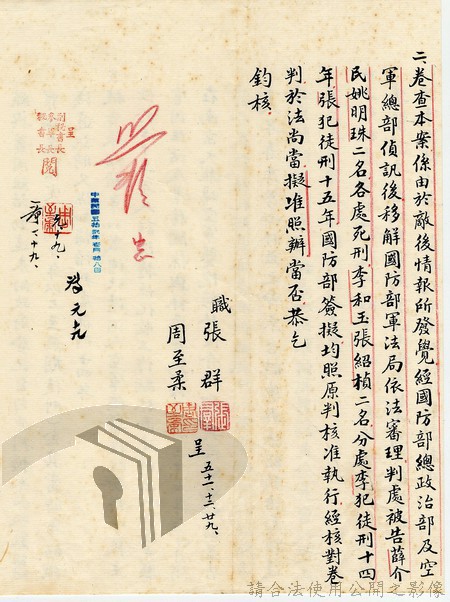 二、卷查本案係由於敵後情報所發覺經國防部總政治部及空
軍總部偵訊後移解國防部軍法局依法審理判處被告薛介
民姚明珠二名各處死刑李和玉張紹楨二名分處李犯徒刑十四
年張犯徒刑十五年國防部簽擬均照原判核准執行經核對卷
判於法尚當擬准照辦當否恭乞
鈞核
職張群
周至柔
呈 五十一、十二、廿九、
呈
副秘書長
參軍長
秘書長
閱
請合法使用公開之影像